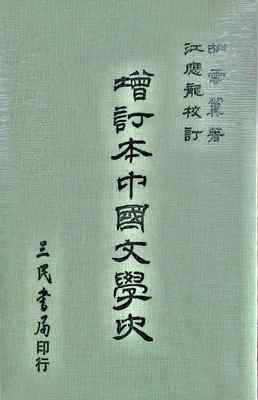 胡雲翼著
江應龍校訂
增訂本中國文學史
三民書局印行